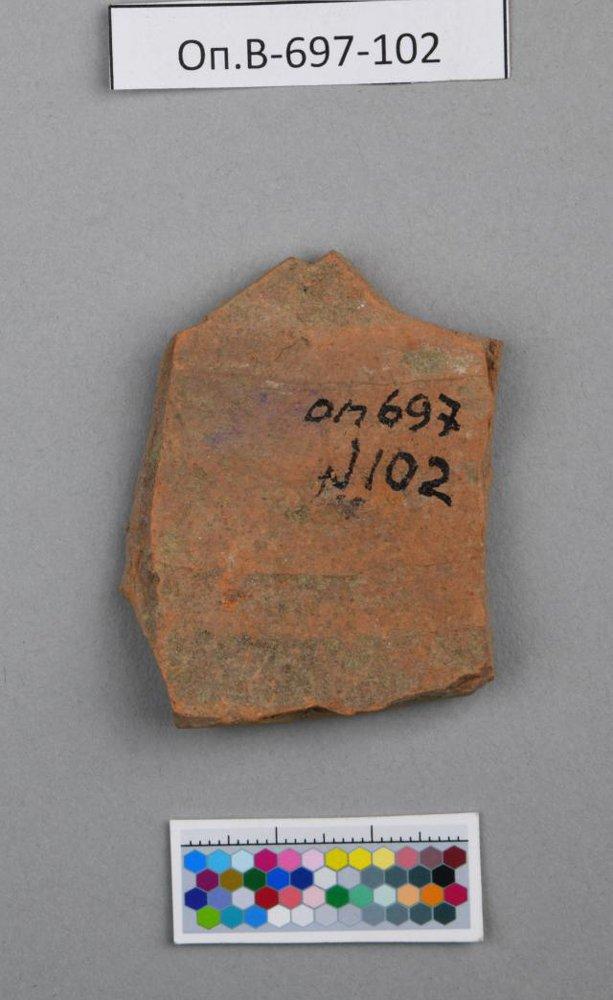 Оп.В-697-102
оп 697
№102